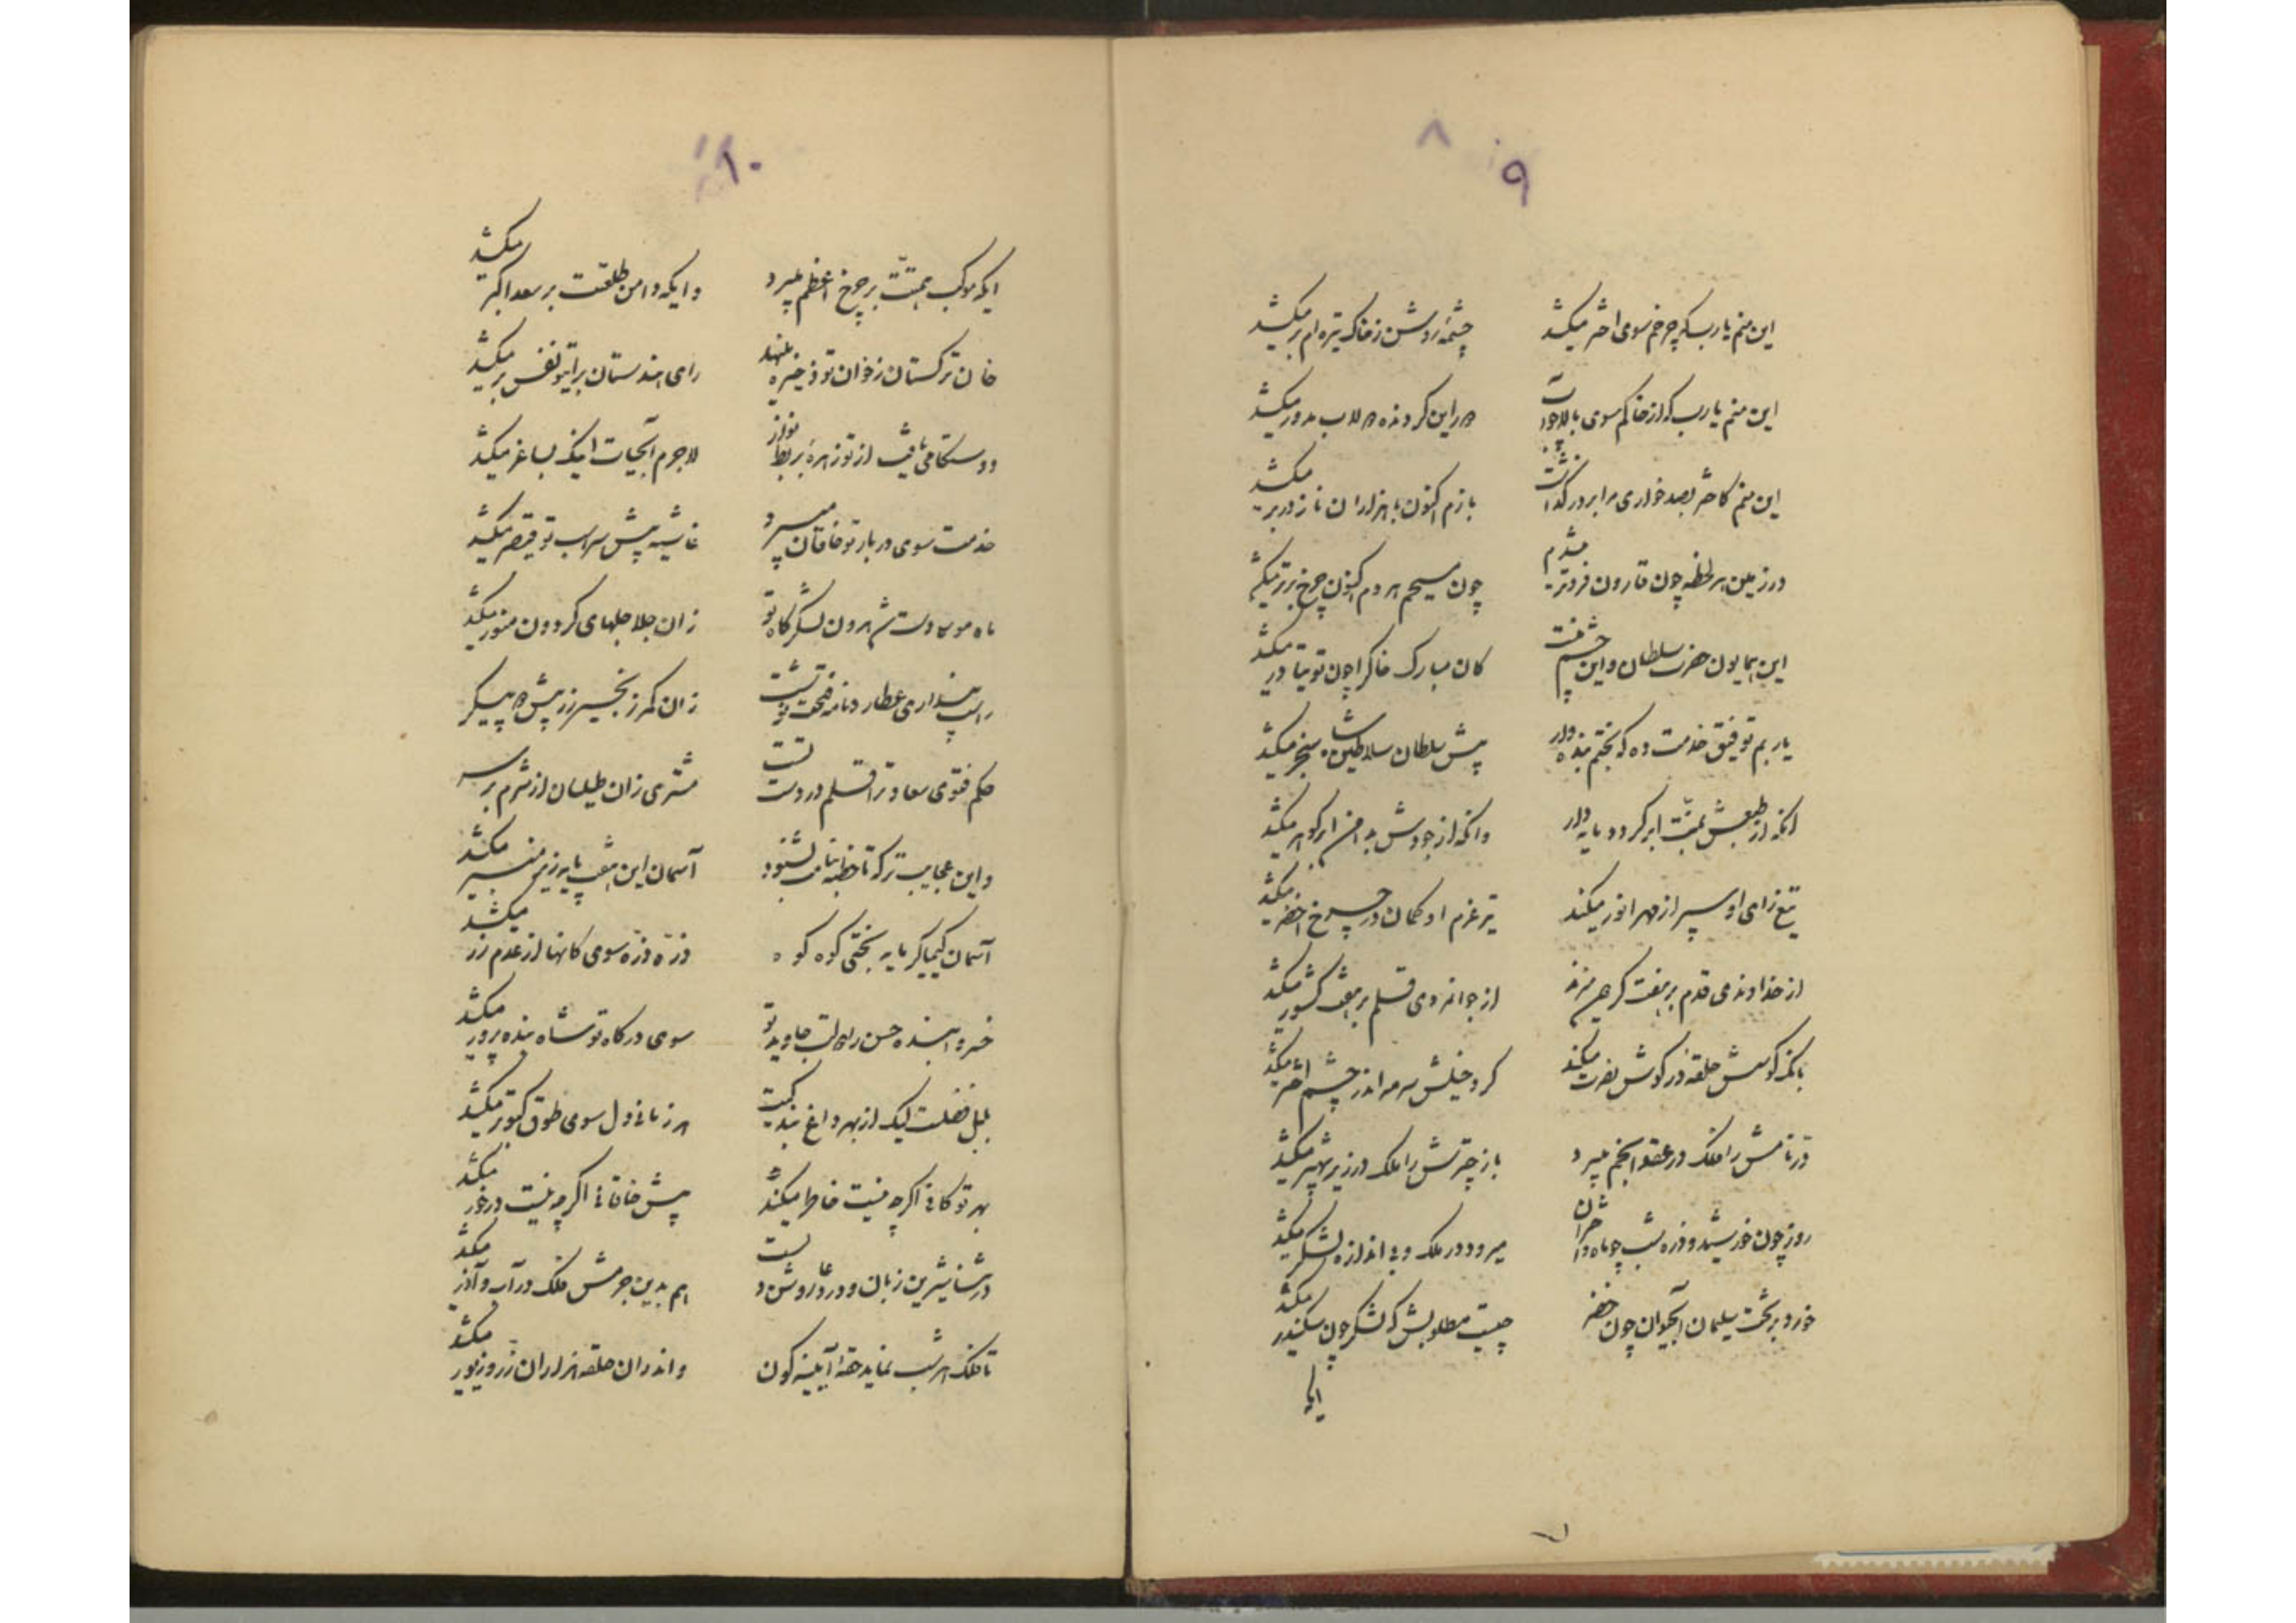 ۸
۹
این منم یارب که چرخم سوی اختر میکشد
چشمهٔ روشن ز خاک تیره ام بر میکشد
این منم یارب که از خاکم سوی بالا چو آب
این منم کاخر بصد خواری مرا بر در گذاشت
بازم اکنون با هزاران ناز در بر میکشد
در زمین هر لحظه چون قارون فروتر میشدم
چون مسیحم هر دم اکنون چرخ برتر میکشد
این همایون حضرت سلطان و این چشم منست
کان مبارک خاک را چون توتیا در میکشد
یاربم توفیق خدمت ده که بختم بنده وار
پیش سلطان سلاطین شاه سنجر میکشد
آنکه از طبعش بمنّت ابر گردد مایه دار
وانکه از جودش بدامن ابر گوهر میکشد
تیغ رای او سپر از مهر انور میکند
تیر عزم او کمان در چرخ اخضر میکشد
از خداوندی قدم بر هفت گردون میزند
از جوانمردی قلم بر هفت کشور میکشد
بانگ کوسش حلقه در گوش نصرت میکند
گرد خیلش سرمه اندر چشم اختر میکشد
در نامش را فلک در عقد انجم میبرد
باز چترش را ملک در زیر شهپر میکشد
روز چون خورشید و ذره شب چو ماه و اختران
میرود در ملک و بی اندازه لشکر میکشد
خورد بر تخت سلیمان آبحیوان چون خضر
چیست مطلوبش که لشکر چون سکندر میکشد
ایکه
۱۰
ایکه موکب همتت بر چرخ اعظم میبرد
وایکه دامن طلعتت بر سعد اکبر میکشد
خان ترکستان ز خوان تو ذخیره مینهد
رای هندستان برای تو نفس بر میکشد
دوستکامی یافت از تو زهرهٔ بربط نواز
لاجرم آبحیات اینک بساغر میکشد
خدمت سوی دربار تو خاقان میبرد
غاشیه پیش سراسب تو قیصر میکشد
زان جلاجلهای گردون منور میکشد
راست پنداری عطارد نامه فتحت نوشت
زان کمر زنجیر زر پیش دو پیکر
حکم فتوی سعادت را قلم در دست تست
مشتری زان طیلسان از شرم بر سر
واین عجایب تر که تا خطبه بنامت بشنود
آسمان این هفت پایه زیر منبر میکشد
آسمان کیمیاگر مایه بختی کوه کوه
ذرّه ذرّه سوی کانها از عدم زر میکشد
خسروا بنده حسن را دولت جاوید تو
سوی درگاه تو شاه بنده پرور میکشد
بلبل فضلست لیک از بهر داغ بندگیت
هر زمانی دل سوی طوق کبوتر میکشد
بهر تو کانی اگرچه نیست خاطر میکند
پیش خاقانی اگرچه نیست در خور میکشد
در ثنا شیرین زبان و در دعا روشن دلست
هم بدین جرمش فلک در آب و آذر میکشد
تا فلک هر شب نماید حقهٔ آیینه گون
واندران حلقه هزاران زرّ و زیور میکشد